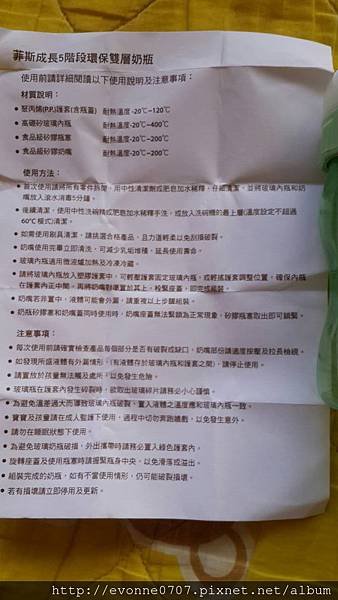 菲斯成長5階段環保雙層奶瓶
使用前請詳細閱讀以下使用說明及注意事項：
材質說明：
聚丙烯(P.P.)護套(含瓶蓋) 耐熱溫度-20℃~120℃
高硼矽玻璃內瓶 耐熱溫度-20℃~400℃
食品級矽膠瓶塞 耐熱溫度-20℃~200℃
食品級矽膠奶嘴 耐熱溫度-20℃~200℃
使用方法：
首次使用請將所有零件拆開，用中性清潔劑或肥皂加水稀釋，仔細清潔，並將玻璃內瓶和奶
嘴放入滾水消毒5分鐘。
後續清潔，使用中性洗碗精或肥皂加水稀釋手洗，或放入洗碗機的最上層(溫度設定不超過
60℃程式)清潔。
如需使用刷具清潔，請挑選合格產品，且力道輕柔以免刮損破裂。
奶嘴使用完畢立即清洗，可減少乳垢堆積，延長使用壽命。
玻璃內瓶適用微波爐加熱及冷凍冷藏。
請將玻璃內瓶放入塑膠護套中，可輕壓護套固定玻璃內瓶，或輕搖護套調整位置，確保內瓶
在護套內正中間。再將奶嘴對準置於其上，栓緊座蓋，即完成組裝。
奶嘴若非置中，液體可能會外漏，請重複以上步驟組裝。
奶瓶矽膠塞和奶嘴蓋同時使用時，奶嘴座蓋無法緊鎖為正常現象，矽膠瓶塞取出即可鎖緊。
注意事項：
每次使用前請確實檢查產品每個部分是否有破裂或缺口，奶嘴部份請適度按壓及拉長檢視。
如發現所盛液體有外漏情形，(有液體存於玻璃內瓶和護套之間)，請停止使用。
請置放於孩童無法觸及處所，以免發生危險。
玻璃瓶在護套內發生碎裂時，欲取出玻璃碎片請務必小心謹慎。
為避免溫差過大而導致玻璃內瓶破裂，置入液體之溫度應和玻璃內瓶一致。
寶寶及孩童請在成人監護下使用，過程中切勿奔跑嬉戲，以免發生意外。
請勿在睡眠狀態下使用。
為避免玻璃奶瓶破損，外出攜帶時請務必置入綠色護套內。
旋轉座蓋及使用瓶塞時請握緊瓶身中央，以免滑落或溢出。
組裝完成的奶瓶，如有不當使用情形，仍可能破裂損壞。
若有損壞請立即停用及更新。
http://evonne0707.pixnet.net/album